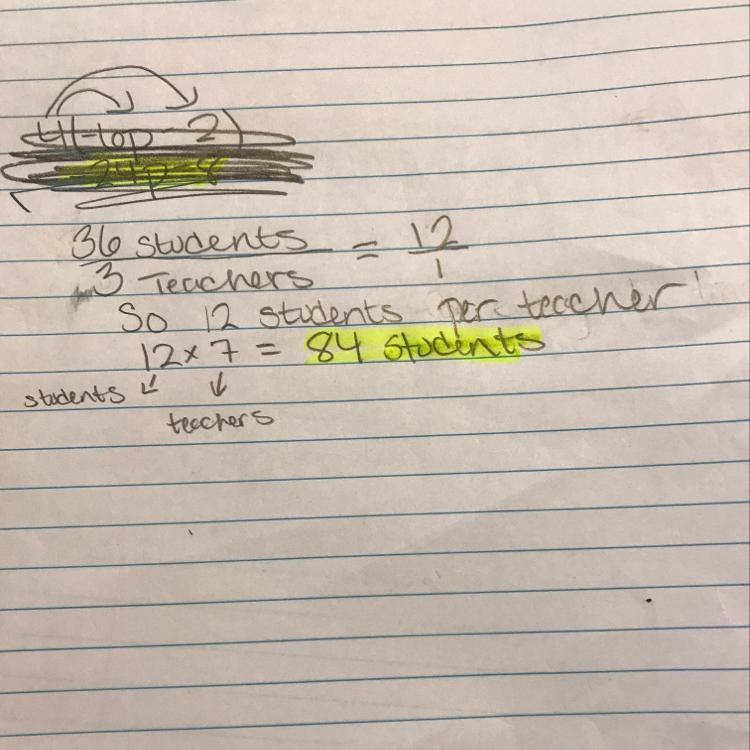 36 students = 12
3 Teachers 1
So 12 students per teacher
12 x 7 = 84 students
students
teachers